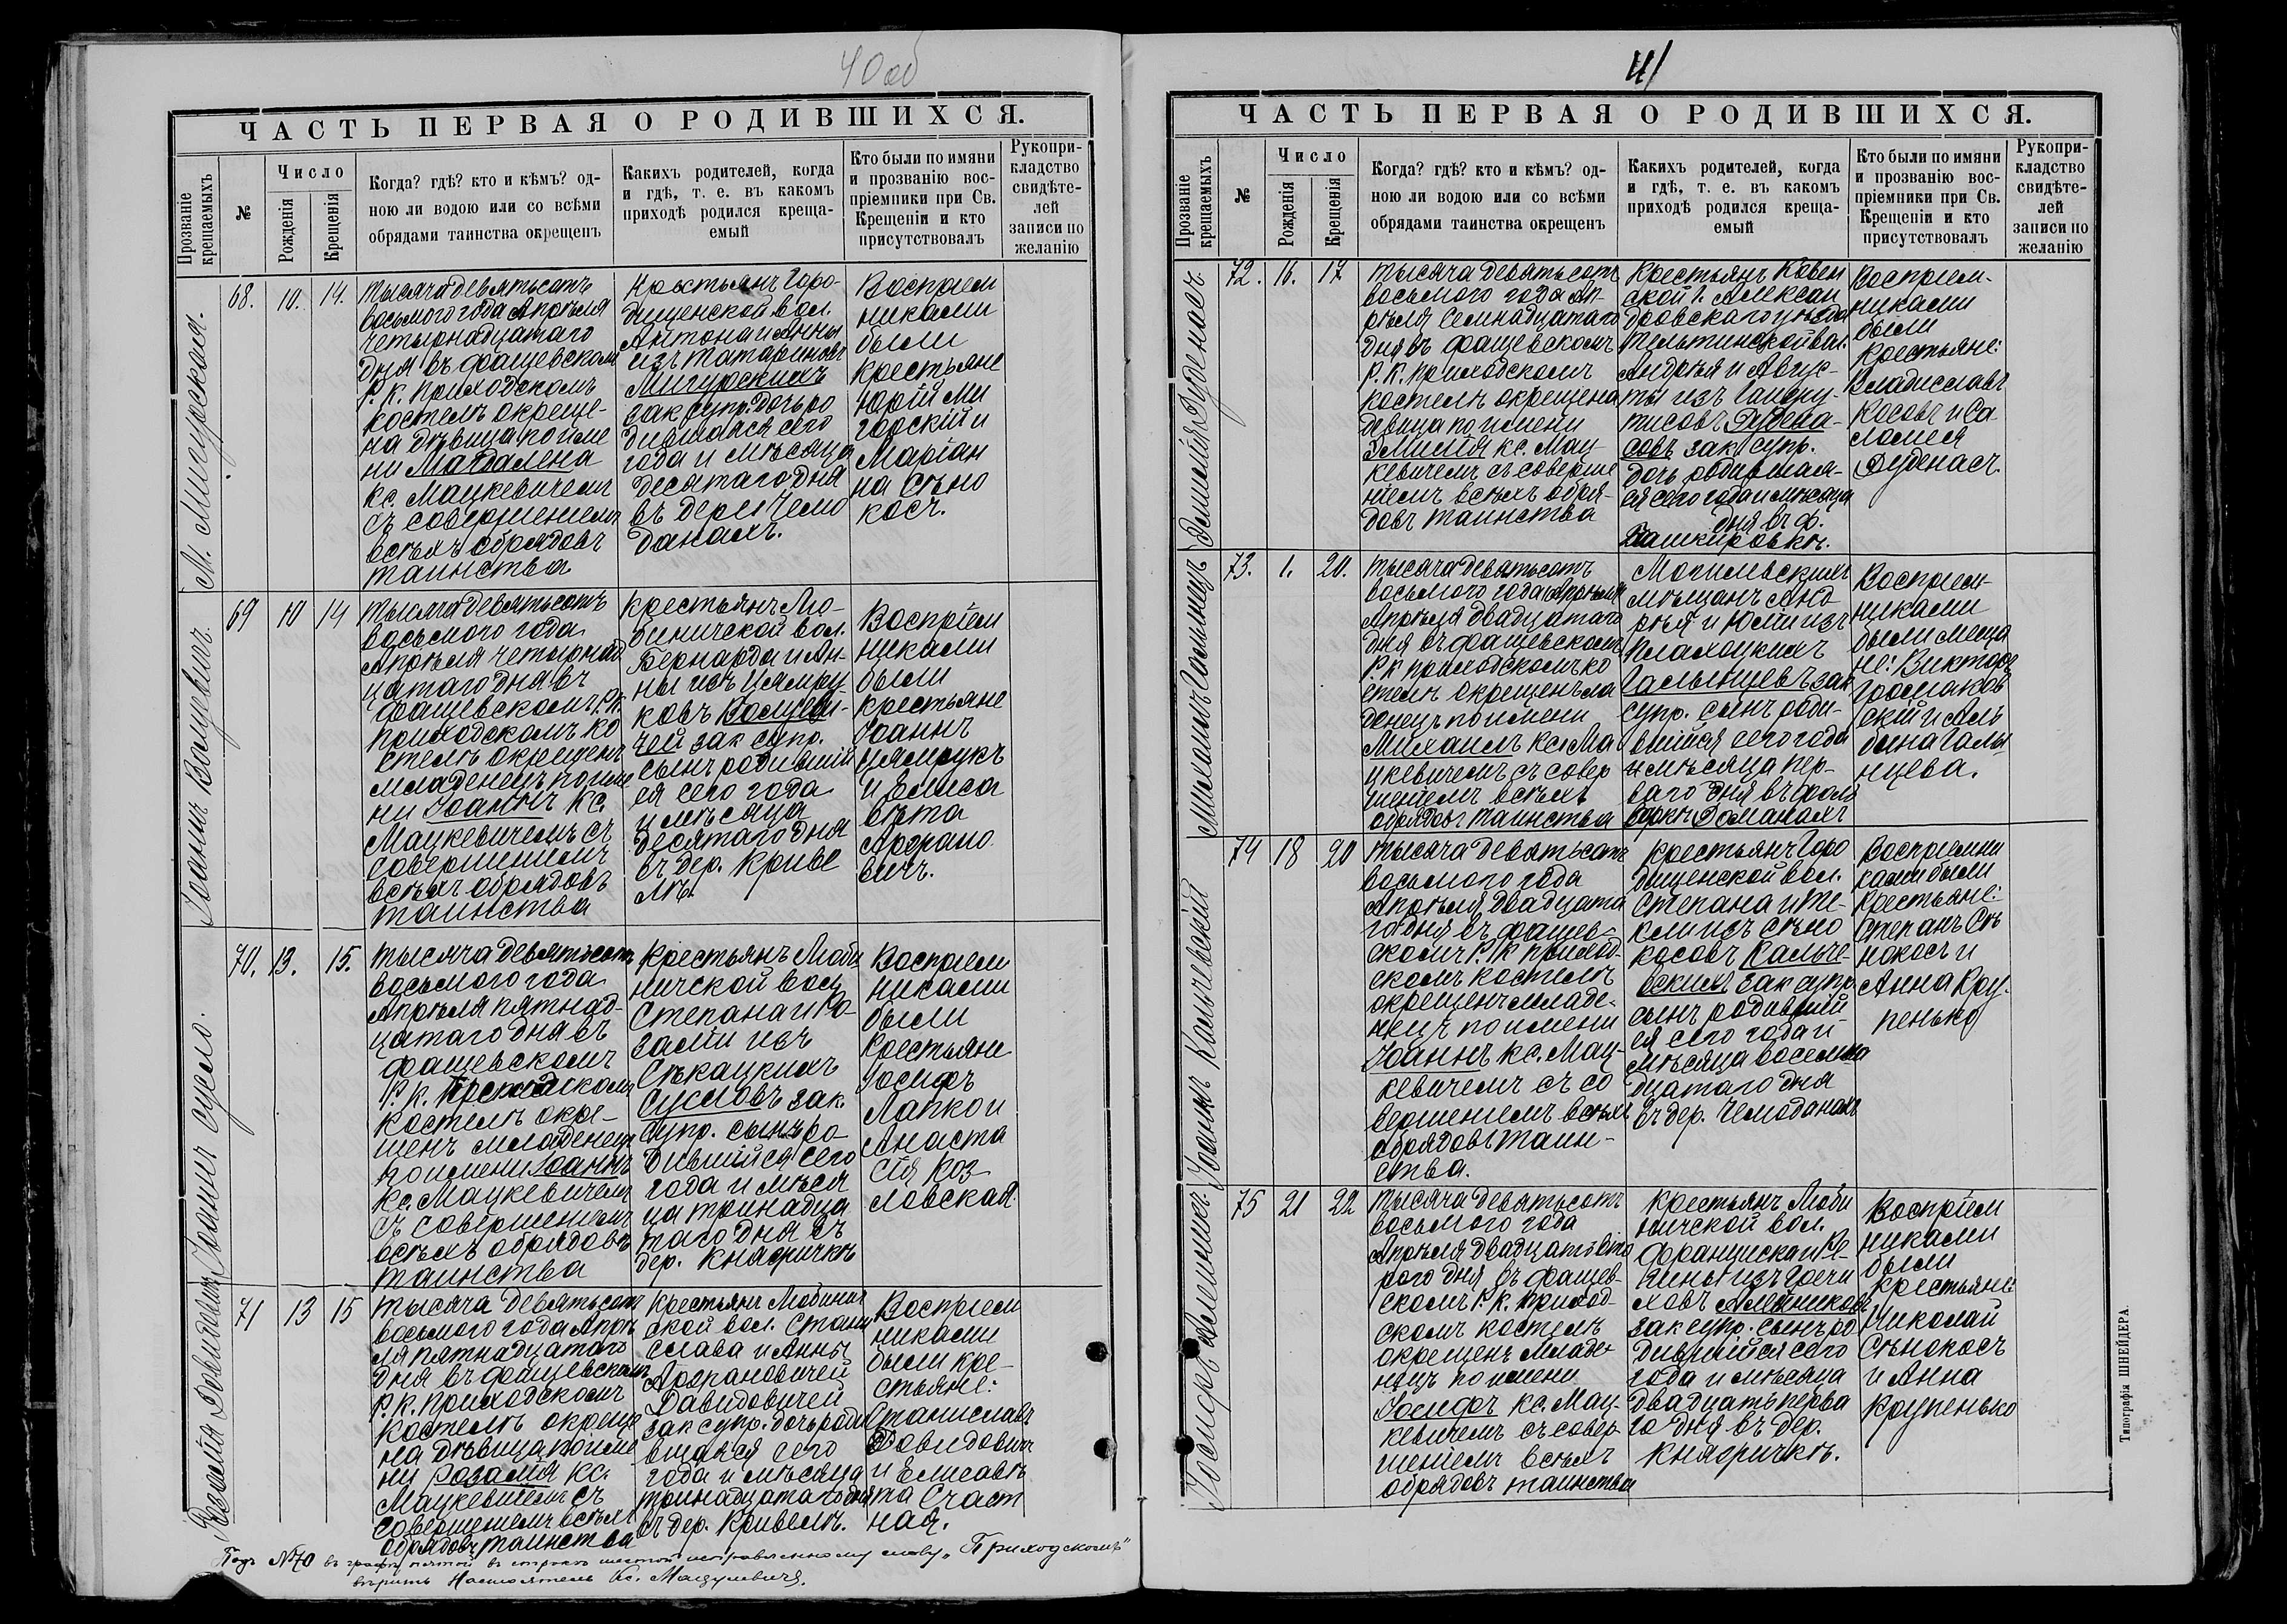 40 об
ЧАСТЬ ПЕРВАЯ О РОДИВШИХСЯ.
Прозваніе крещаемыхъ
№
Число
Рожденія
Крещенія
Когда? гдѣ? кто и кѣмъ? од-
ною ли водою или со всѣми
обрядами таинства окрещенъ
Каихъ родителей, когда
и гдѣ, т. е. въ какомъ
приходѣ родился креща-
емый
Кто были по имяни
и прозванію вос-
пріемники при Св.
Крещеніи и кто
присутствовалъ
Рукопри-
кладство
свидѣте-
лей
записи по
желанію
М. Мигурская.
68. 10. 14.
Тысяча девятьсотъ
восьмого года Апрѣля
четырнадцатаго
дня въ Фащевскомъ
Р. К. Приходскомъ
костелѣ окреще-
на дѣвица по име
ни Магдалена
кс. Мацкевичемъ
съ совершеніемъ
всѣхъ обрядовъ
таинства
Крестьянъ Горо-
дищенской вол.
Антона и Анны
изъ Татариновъ
Мигурскихъ
зак. супр. дочь ро
дившаяся сего
года и мѣсяца
десятаго дня
въ дер. Чемо
данахъ.
Воспріем
никами
были
крестьяне
Юрій Ми
горскій и
Маріан
на Сѣно
косъ.
Іоаннъ Волцевичъ.
69 10 14
Тысяча девятьсотъ
восьмого года
Апрѣля четырнад
цатаго дня въ
Фащевскомъ Р. К.
приходскомъ ко
стелѣ окрещенъ
младенецъ по име
ни Іоаннъ кс.
Мацкевичемъ съ
совершеніемъ
всѣхъ обрядовъ
таинства
Крестьянъ Лю-
биничской вол.
Бернарда и Ан-
ны изъ Цямру
ковъ Волцеви-
чей зак супр.
сынъ родившій
ся сего года
и мѣсяца
десятаго дня
въ дер. Криве
лѣ.
Воспріем
никами
были
крестьяне
Іоаннъ
Цямрукъ
и Елиса
вѣта
Арцано
вичъ.
Іоаннъ Сусло.
70. 13. 15.
Тысяча девятьсотъ
восьмого года
Апрѣля пятнад-
цатаго дня въ
Фащевскомъ
Р. К. Приходскомъ
костелѣ окре-
щенъ младенецъ
по имени Іоаннъ
кс. Мацкевичемъ
съ совершеніемъ
всѣхъ обрядовъ
таинства
Крестьянъ Люби
ничской вол.
Степана и Ро-
заліи изъ
Сѣкацкихъ
Сусловъ зак.
супр. сынъ ро-
дившійся сего
года и мѣся
ца тринадца
таго дня въ
дер. Княжичкѣ
Воспріем
никами
были
крестьяне
Іосифъ
Лапко и
Анаста
сія Коз-
ловская.
Розалія Довидовичъ
71 13 15
Тысяча девятьсотъ
восьмого года Апрѣ
ля пятнадцатаго
дня въ Фащевскомъ
Р. К. Приходскомъ
костелѣ окреще
на дѣвица по име
ни Розалія кс.
Мацкевичемъ съ
совершеніемъ всѣхъ
обрядовъ таинства
Крестьянъ Любинич
ской вол. Стани
слава и Анны
Арцановичей
Давидовичей
зак супр. дочь роди
вшаяся сего
года и мѣсяца
тринадцатаго дня
въ дер. Кривелѣ.
Воспріем
никами
были кре-
стьяне:
Станиславъ
Довидовичъ
и Елисавѣ
та Счаст
ная.
Подъ №70 въ графѣ пятой въ строкѣ шестой исправленному слову „Приходскомъ"
вѣрить Настоятель Кс. Мацкевичъ.
41
ЧАСТЬ ПЕРВАЯ О РОДИВШИХСЯ.
Прозваніе крещаемыхъ
№
Число
Рожденія
Крещенія
Когда? гдѣ? кто и кѣмъ? од-
ною ли водою или со всѣми
обрядами таинства окрещенъ
Какихъ родителей, когда
и гдѣ, т. е. въ какомъ
приходѣ родился креща-
емый
Кто были по имяни
и прозванію вос-
пріемники при Св.
Крещеніи и кто
присутствовалъ
Рукопри-
кладство
свидѣте-
лей
записи по
желанію
Эмилія Дуденасъ.
72. 16. 17
Тысяча девятьсотъ
восьмого года Ап-
рѣля семнадцатаго
дня въ Фащевскомъ
Р. К. приходскомъ
костелѣ окрещена
девица по имени
Эмилія кс. Мац-
кевичемъ съ соверше
ніемъ всѣхъ обря-
довъ таинства
Крестьянъ Ковен
ской г. Алексан
дровскаго уѣзда
Тельтинской вол.
Андрея и Авгус-
ты изъ
Дудена-
совъ зак. супр.
дочь родившая-
ся сего года и мѣсяца
дня въ ф.
Башкировкѣ.
Воспріем-
никами
были
крестьяне:
Владиславъ
Косовъ и Са-
ломея
Дуденасъ.
Михаилъ Галынецъ
73. 1. 20.
Тысяча девятьсотъ
восьмого года Апрѣля
Апрѣля двадцатаго
дня въ Фащевскомъ
Р. К приходскомъ ко
стелѣ окрещенъ мла
денецъ по имени
Михаилъ кс. Ма
цкевичемъ съ совер
шеніемъ всѣхъ
обрядовъ таинства
Могилевскихъ
мѣщанъ Анд
рея и Юліи изъ
Плахоцкихъ
Галынцевъ зак
супр. сынъ роди-
вшійся сего года
и мѣсяца пер-
ваго дня въ фоль
варкѣ Доманахъ
Воспріем-
никами
были меща
не: Викторъ
Громаков
скій и Аль
бина Галы
нцева.
Іоаннъ Кальчевскій
74 18 20
Тысяча девятьсотъ
восьмого года
Апрѣля двадцата
го дня въ Фащев-
скомъ Р. К приход-
скомъ костелѣ
окрещенъ младе-
нецъ по имени
Іоаннъ кс. Мац-
кевичемъ съ со
вершеніемъ всѣхъ
обрядовъ таин-
ства.
Крестьянъ Горо
дищенской вол.
Степана и Те-
кли изъ Сѣно
косовъ Кальче-
вскихъ зак супр
сынъ родившій
ся сего года и
мѣсяца восемна
дцатаго дня
въ дер. Чемоданахъ
Воспріемни
ками были
крестьяне:
Степанъ Сѣ
нокосъ и
Анна Кру-
пенько
Іосифъ Алейникъ.
75 21 22
Тысяча девятьсотъ
восьмого года
Апрѣля двадцать вто
рого дня въ Фащев-
скомъ Р. К. Приход-
скомъ костелѣ
окрещенъ младе-
нецъ по имени
Іосифъ кс. Мац-
кевичемъ съ совер-
шеніемъ всѣхъ
обрядовъ таинства
Крестьянъ Люби
ничской вол.
Франциска и Ге-
лены изъ Гречи
ховъ Алейниковъ
зак супр. сынъ ро
дившійся сего
года и мѣсяца
двадцать перва
го дня въ дер.
Княжичкѣ.
Воспріем
никами
были
крестьяне
Николай
Сѣнокосъ
и Анна
Крупенько
Типографія ШНЕЙДЕРА